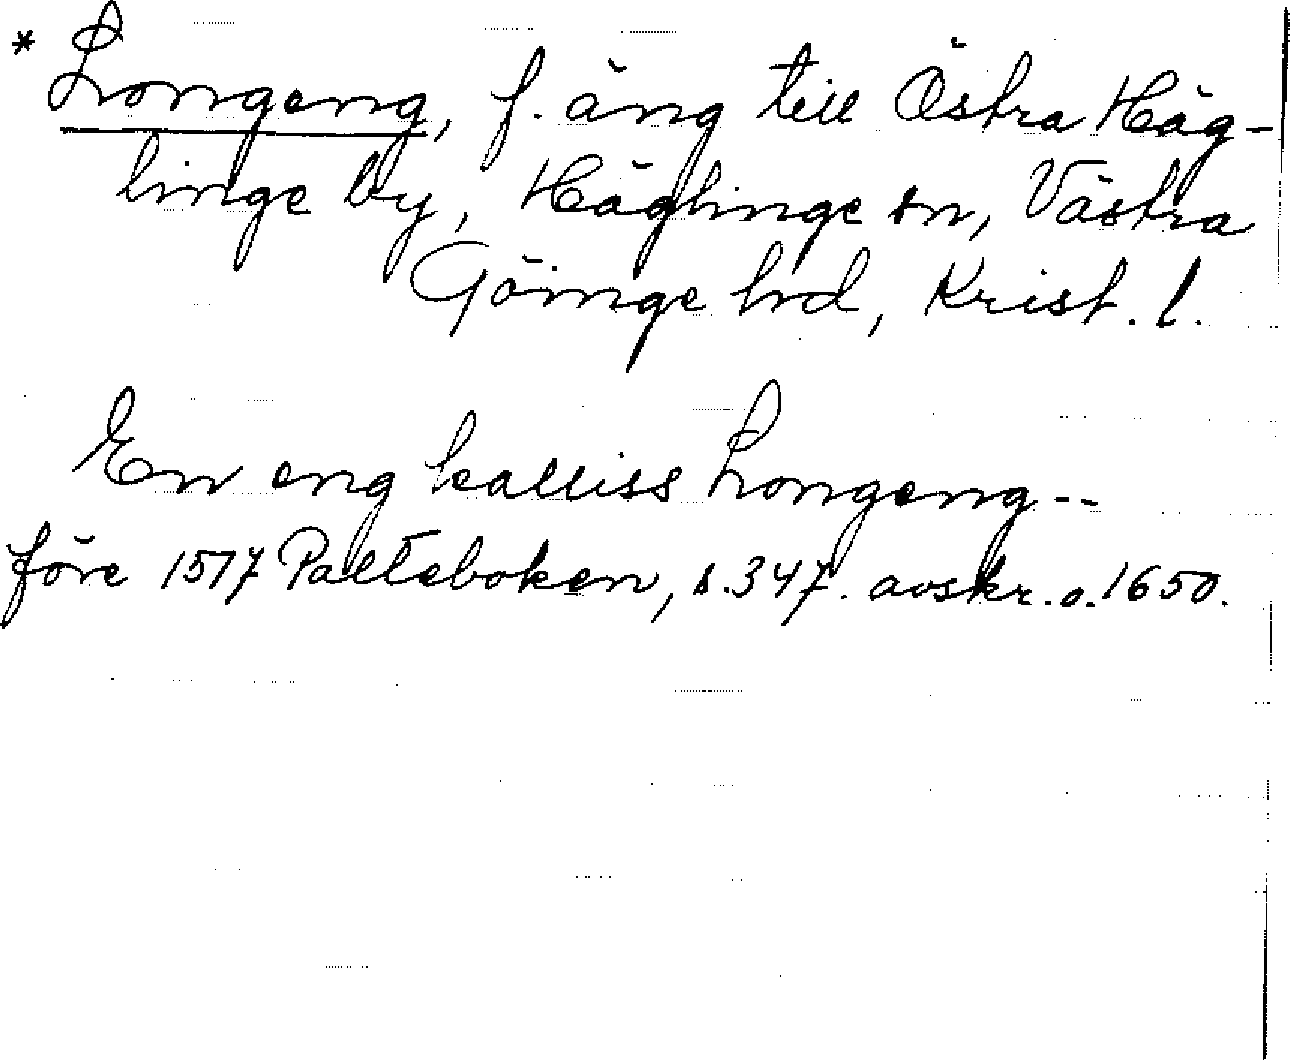 * Longeng, f. äng till Östra Häg-
linge by, Häglinge sn, Västra
Göinge hd, Krist. l.
En eng kalliss Longeng --
före 1517 Palteboken, s. 347. avskr. o. 1650.